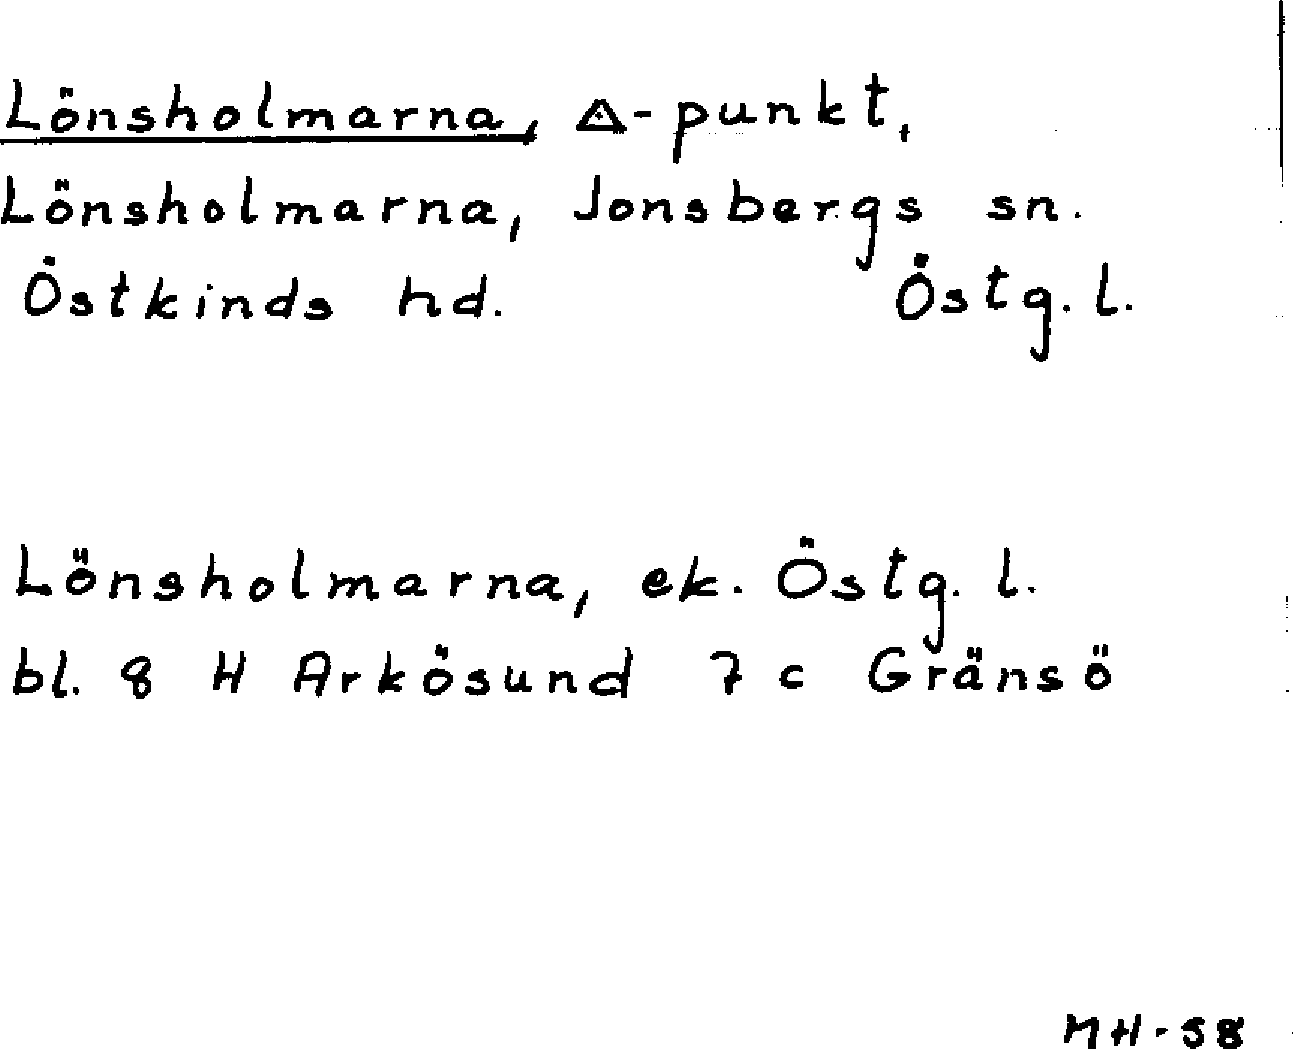 Lönsholmarna, △-punkt,
Lönsholmarna, Jonsbergs sn.
Östkinds hd. Östg. l.
Lönsholmarna, ek. Östg. l.
bl. 8 H Arkösund 7 c Gränsö
MH-58